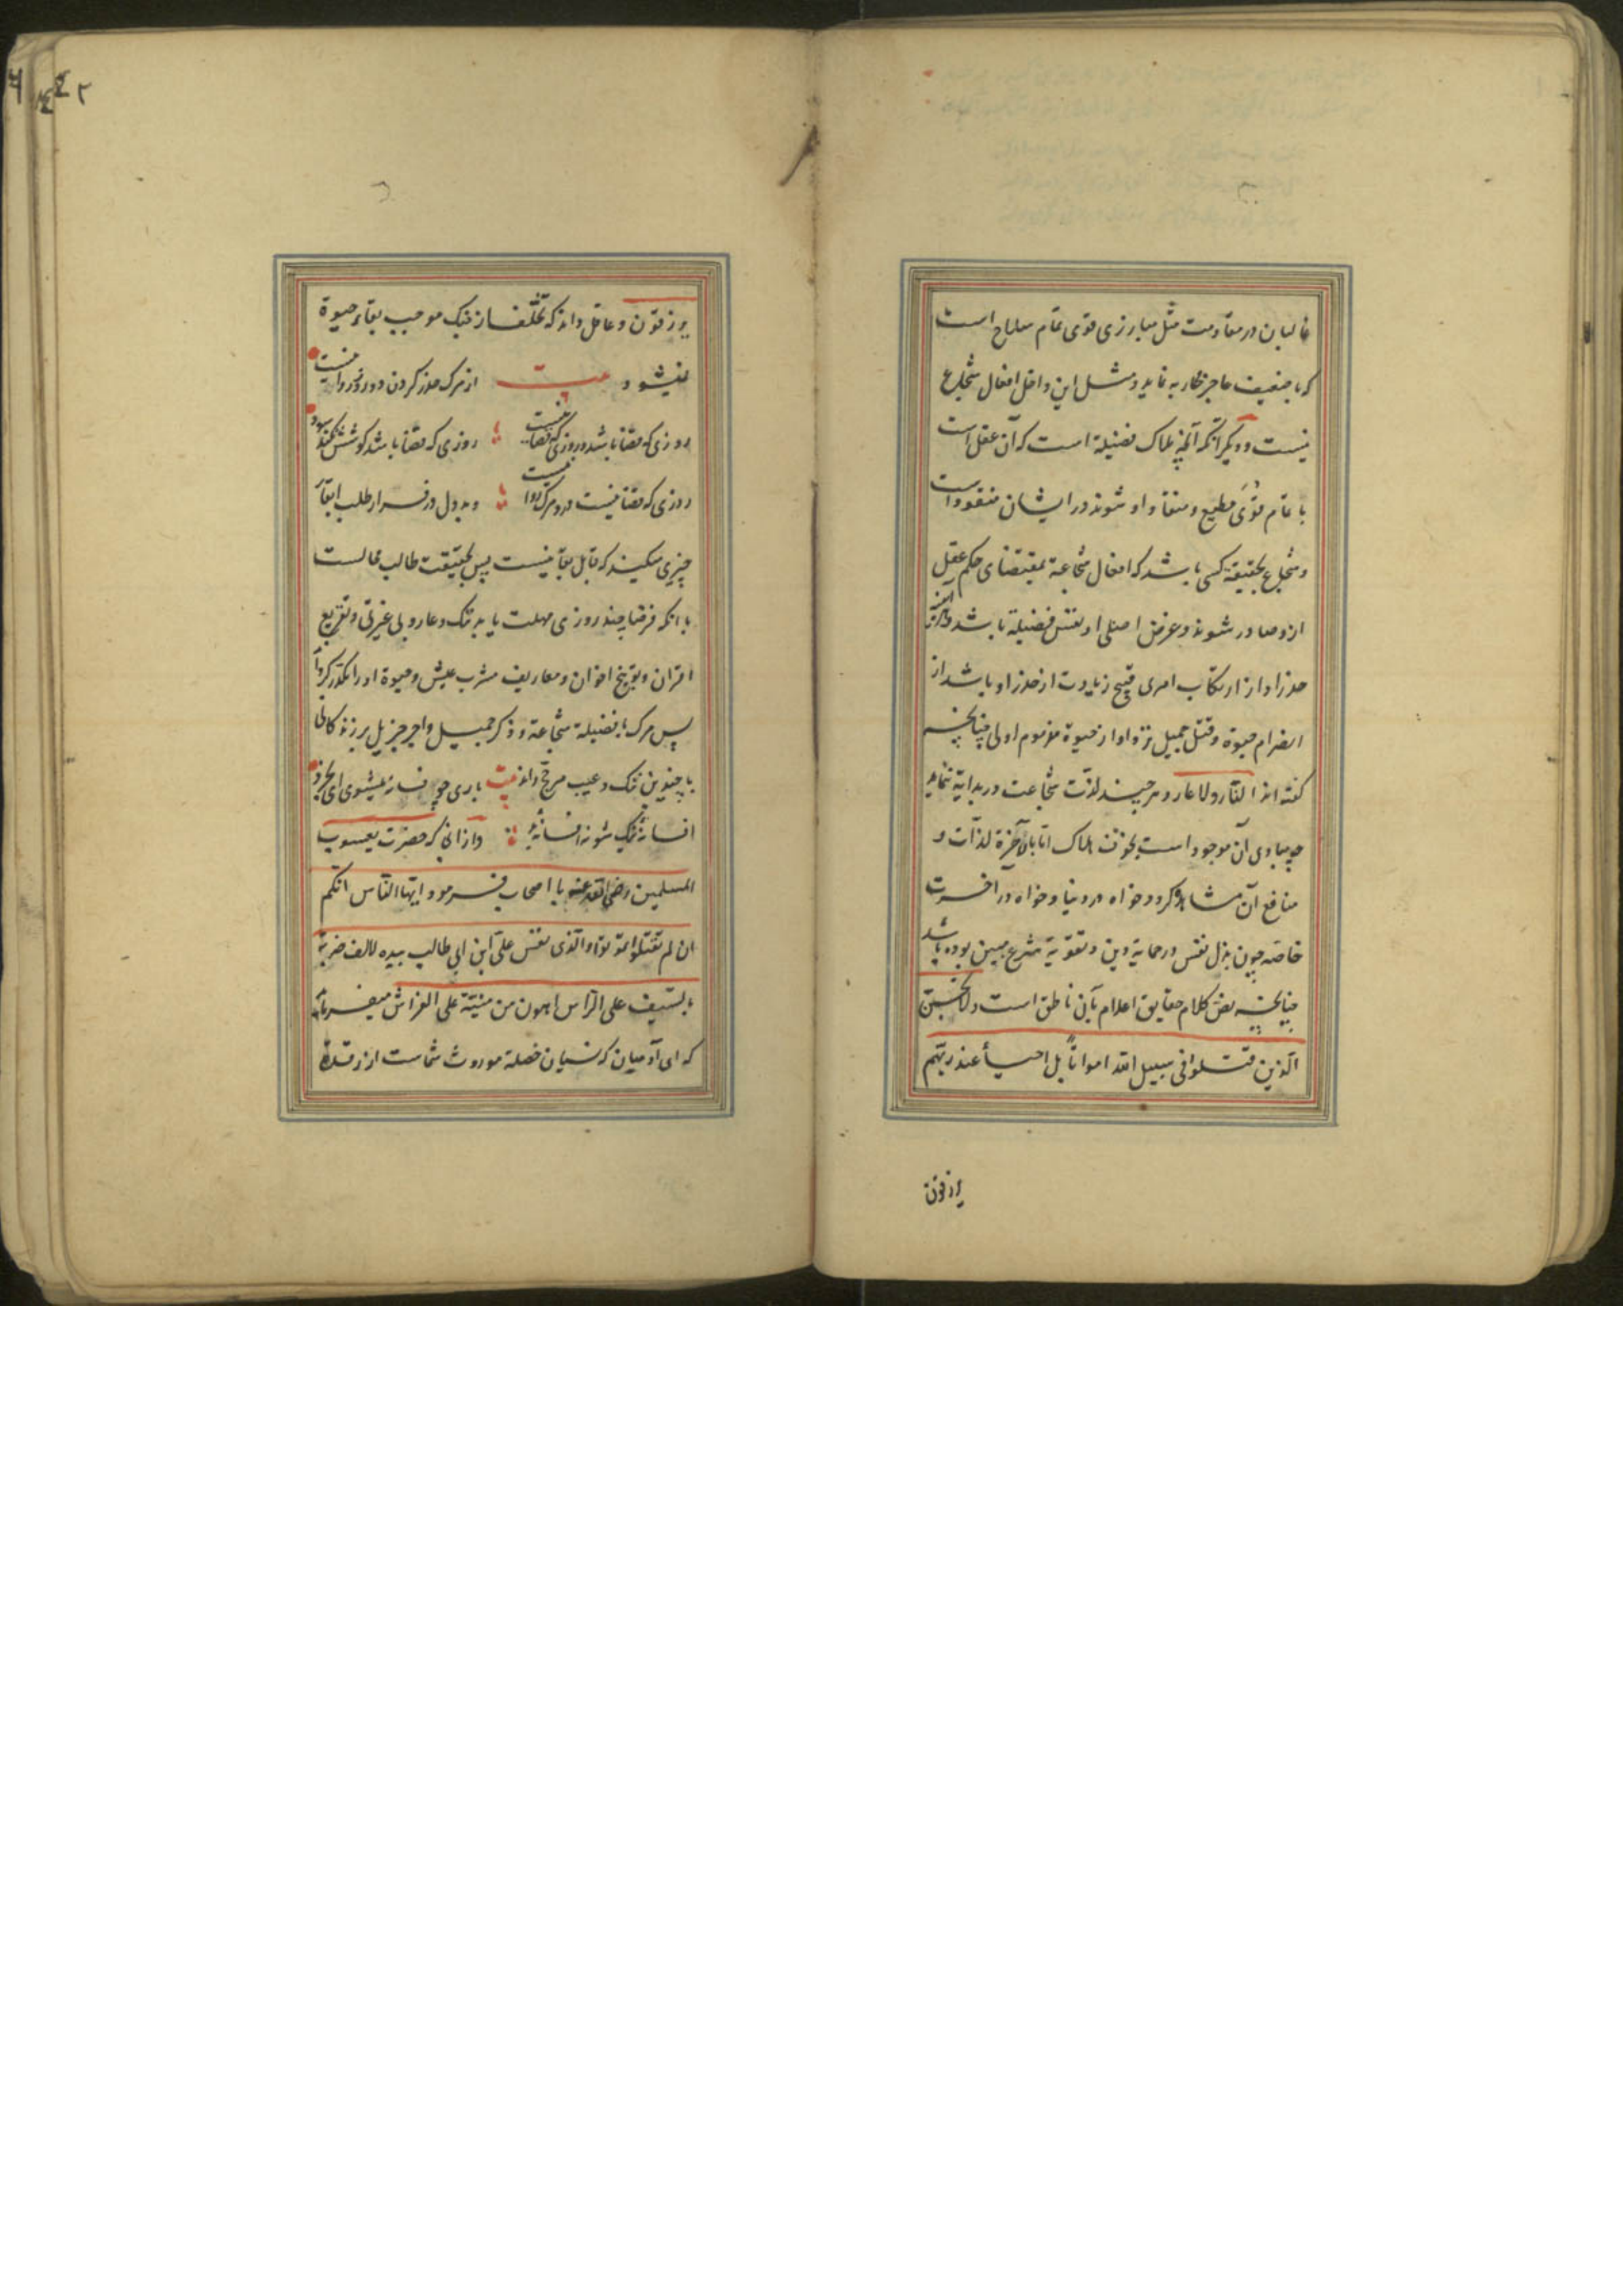 غالبان در مقاومت مثل مبارزی قوی تمام سلاح است
که با ضعیف عاجز محاربه نماید و مثل این داخل افعال شجاع
نیست و دیگر آنکه آنچه ملاک فضیلة است که آن عقل است
با تمام قُوَی مطیع و منقاد او شوند در ایشان مفقود است
و شجاع بحقیقة کسی باشد که افعال شجاعة بمقتضای حکم عقل
ازو صادر شوند و غرض اصلی او نفس فضیلة باشد
حذر او از ارتکاب امری قبیح زیادت از حذر او باشد از
انصرام حیوة و قتل جمیل نزد او از حیوة مذموم اولی چنانچه
کفته اند النّار ولا عار و هر چند لذّت شجاعت در بدایة ننماید
چو مبادی آن موجود است بخوف هلاک امّا بالآخرة لذّات و
منافع آن مشاهد کردد خواه در دنیا و خواه در آخرت
خاصه چون بذل نفس در حمایة دین و تقویة شرع مبین بوده باشد
چنانچه نص کلام حقایق اعلام بآن ناطق است ولا تحسبنّ
الّذین قتلوا فی سبیل الله امواتاً بل احیأ عند ربّهم
یرزقون
یرزقون و عاقل داند که تخلّف از جنک موجب بقاء حیوة
نمیشود بیت از مرک حذر کردن دو روز روا نیست
روزی که قضا باشد و روزی که قضا نیست روزی که قضا باشد کوشش نکند سود
روزی که قضا نیست درو مرک روا نیست و بد دل در فرار طلب ابقآء
چیزی میکیند که قابل بقآ نیست پس بحقیقت طالب محالست
با آنکه فرضا چند روزی مهلت یابد ننک و عار و بی غیرتی و تقریع
اقران و توبیخ اخوان و معاریف مشرب عیش و حیوة او را مکدّر کرداند
پس مرک با فضیلة شجاعة و ذکر جمیل و اجر جزیل بر زندکانی
با چندین ننک و عیب مرجّح داند بیت باری چو فسانه میشوی ای بخرد
افسانهٔ نیک شو نه افسانهٔ بد و ازانی که حضرت یعسوب
المسلمین رضی الله عنه با اصحاب فرمود ایها النّاس انکم
ان لم تقتلوا تموتوا والّذی نفس علیّ ابن ابی طالب بیده لالف ضربة
بالسّیف علی الرّاس اهون من میتة علی الفراش میفرماید
که ای آدمیان که نسیان خصلة موروث شماست از رقدهٔ